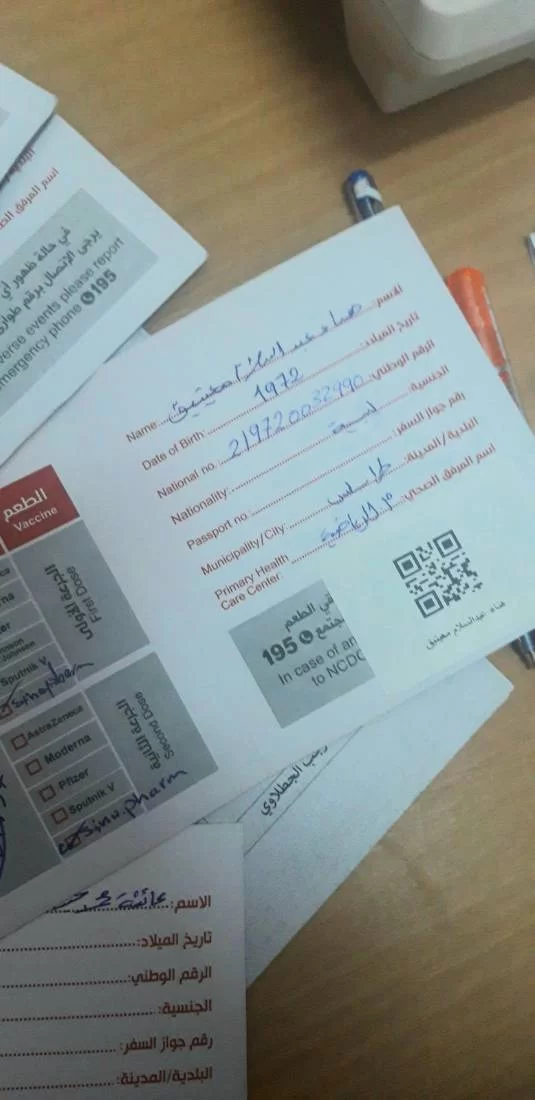 اسم المرفق الصحي
في حالة ظهور أي
يرجى الإتصال برقم طوارئ
verse events please report
mergency phone 195
الاسم: هناء عبد السلام معيتيق Name:
تاريخ الميلاد: 1972 Date of Birth:
الرقم الوطني: 219720032490 National no.
الجنسية: ليبية Nationality:
رقم جواز السفر: Passport no.:
البلدية/المدينة: طرابلس Municipality/City:
اسم المرفق الصحي: Primary Health
Care Center:
في الطعم
جتمع 195
In case of an
to NCDC
هناء عبدالسلام معيتيق
الطعم
Vaccine
الجرعة الأولى
First Dose
Sputnik V
sinopharm
الجرعة الثانية
Second Dose
AstraZeneca
Moderna
Pfizer
Sputnik V
Sinopharm
رجب الجطلاوي
الاسم: عائشة
تاريخ الميلاد:
الرقم الوطني:
الجنسية:
رقم جواز السفر:
البلدية/المدينة: